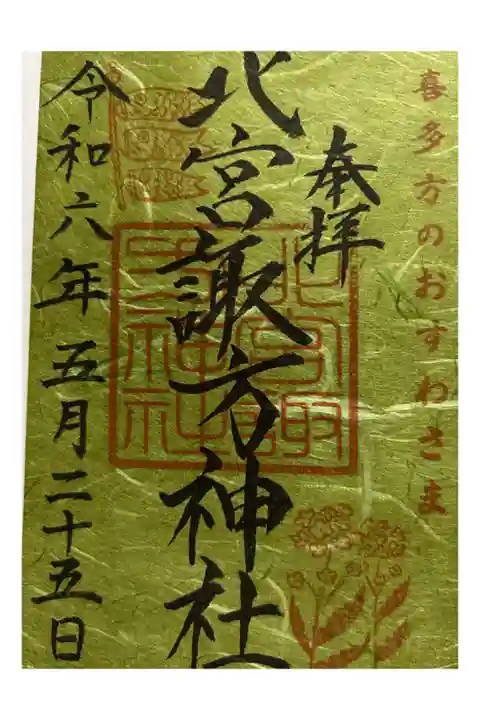 喜多方のおすわさま
奉拝
北宮諏方神社
令和六年五月二十五日
北宮諏方神社